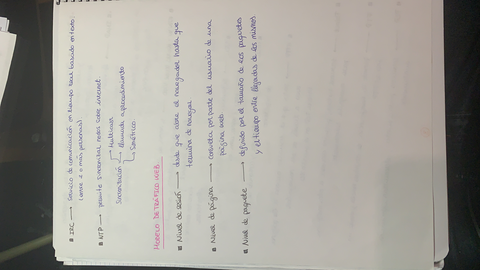 IRC → Servicio de comunicación en tiempo real basado en texto.
(entre 2 o más personas)
NTP → permite sincronizar redes sobre internet
Sincronización → Multicast
→ llamada a procedimiento
→ Simétrico
MODELO DE TRÁFICO WEB
Nivel de sesión → desde que abre el navegador hasta que
termina de navegar
Nivel de página → consulta por parte del usuario de una
página web
Nivel de paquete → definido por el tamaño de los paquetes
y el tiempo entre llegadas de los mismos